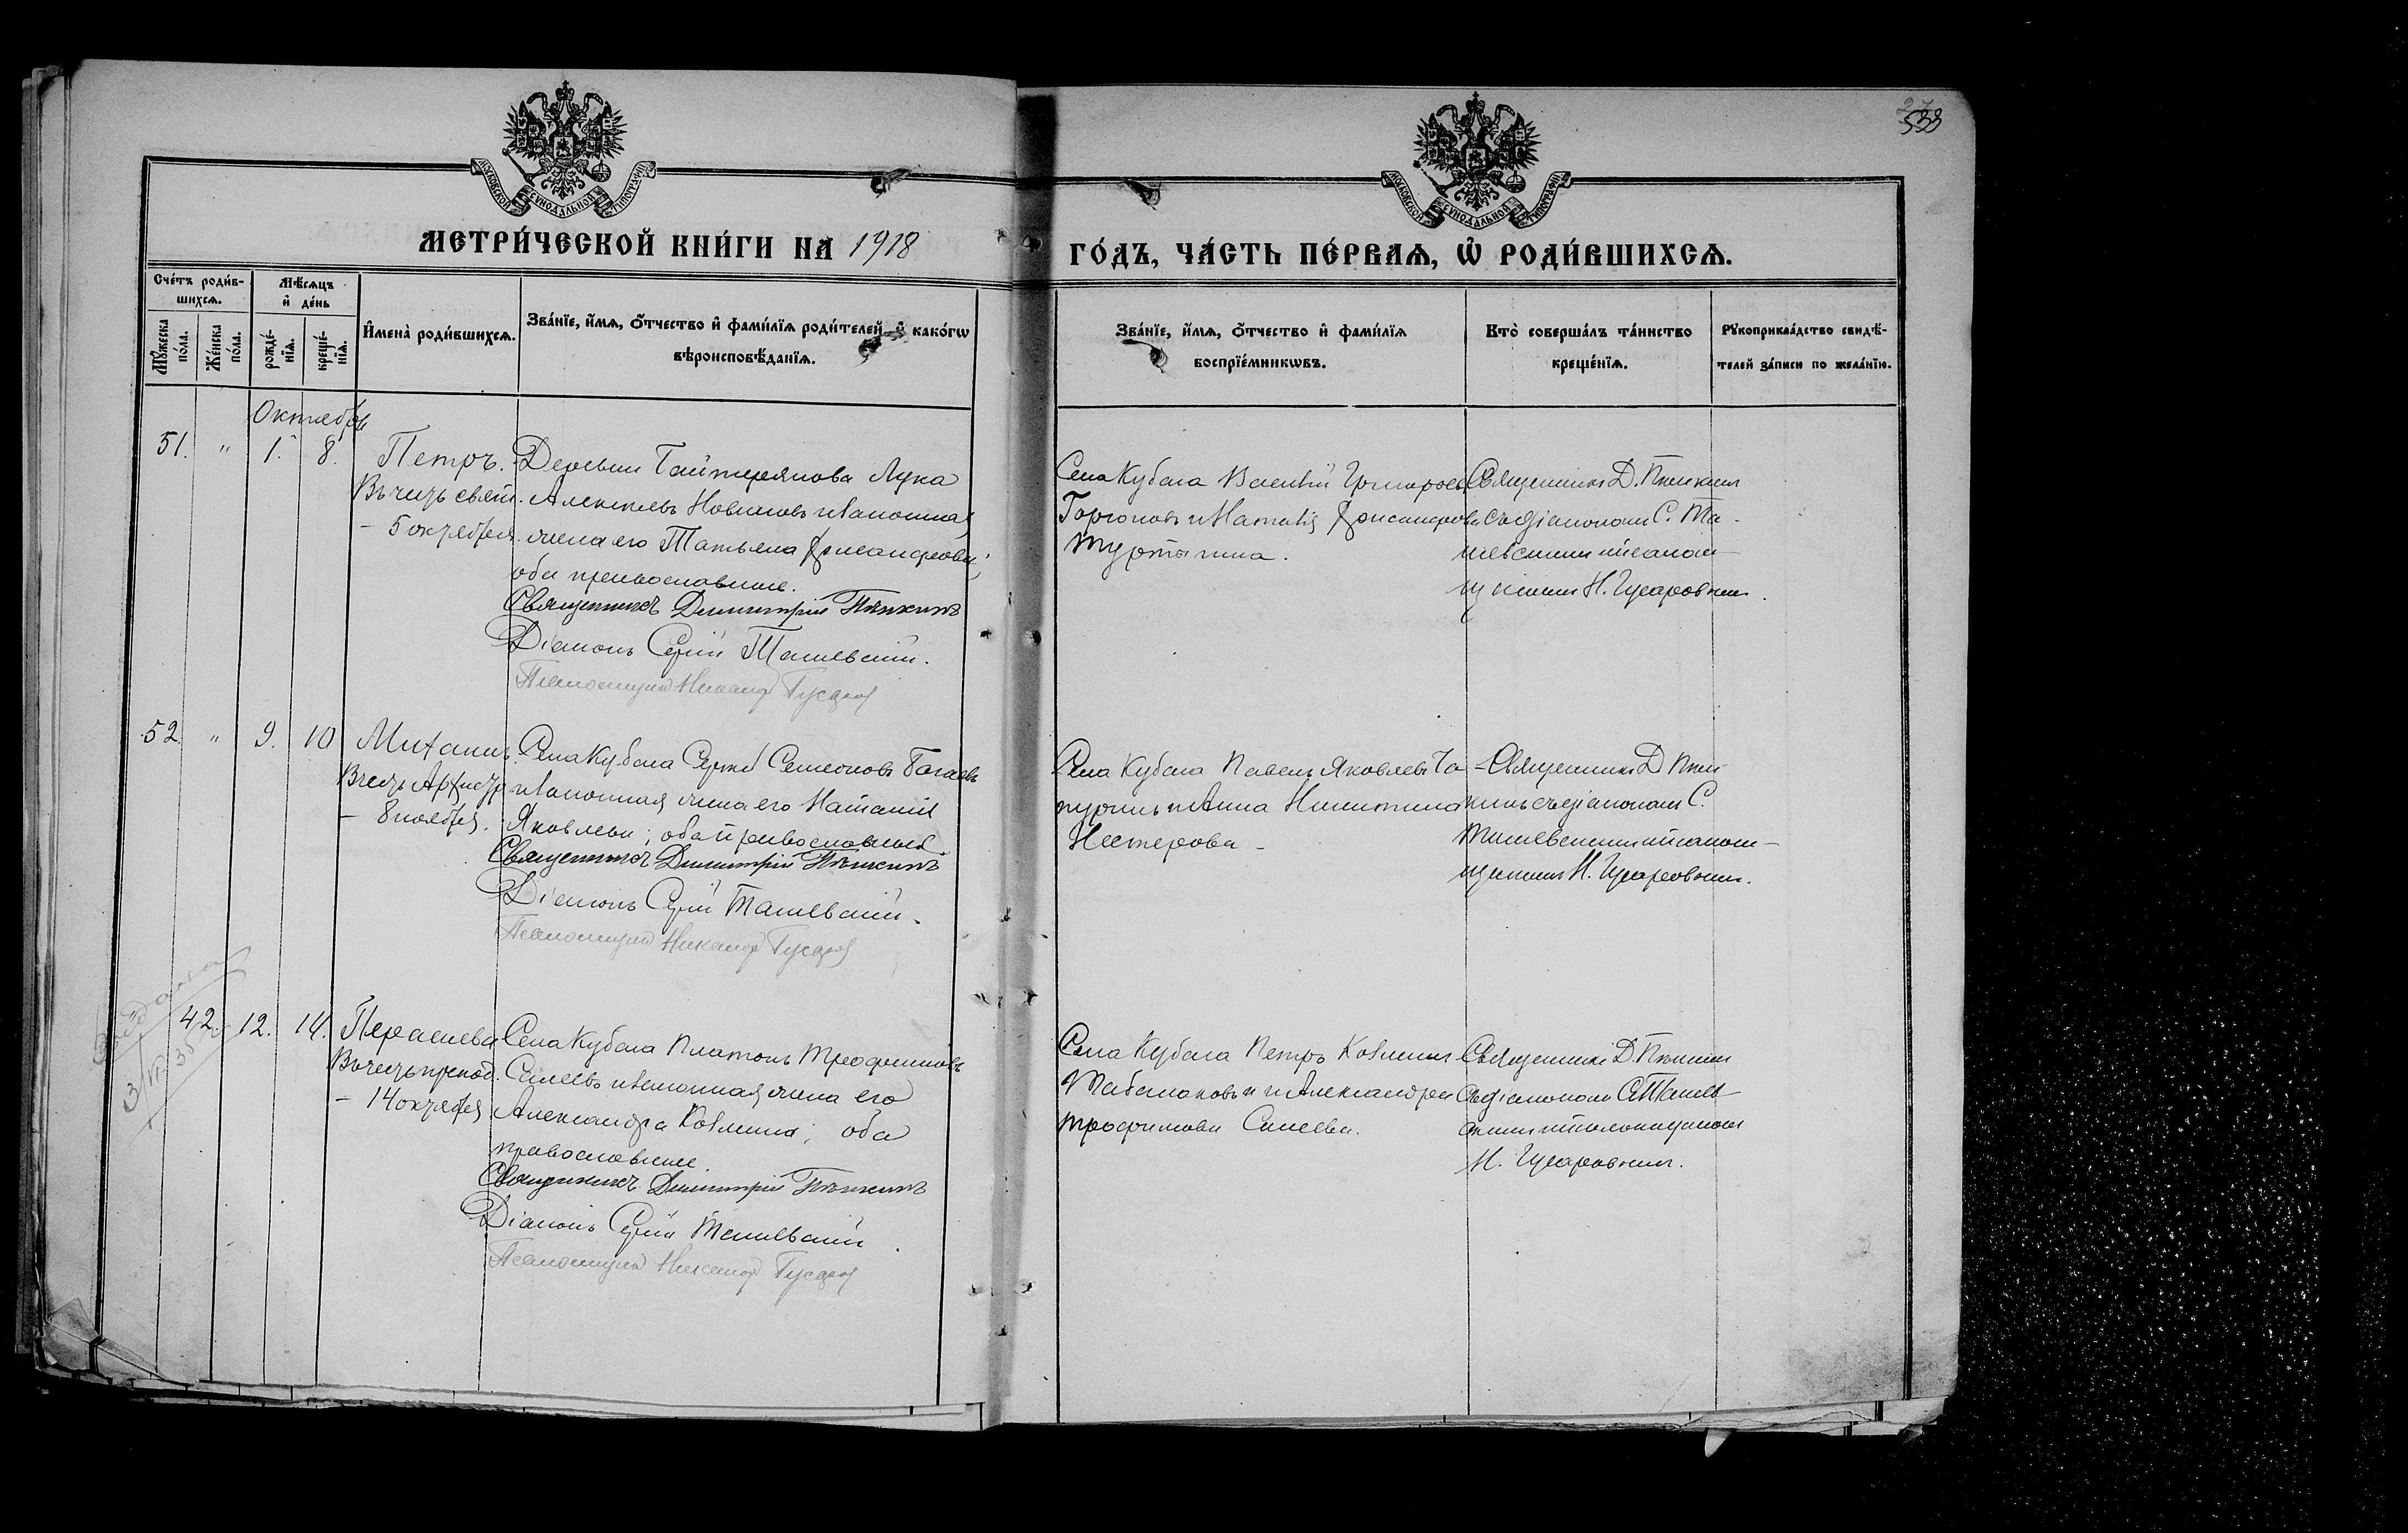 533
МОСКОВСКОЙ СѴНОДАЛЬНОЙ ТИПОГРАФІИ
МОСКОВСКОЙ СѴНОДАЛЬНОЙ ТИПОГРАФІИ
МЕТРИ́ЧЕСКОЙ КНИ́ГИ НА 1918
ГО́ДЪ, ЧА́СТЬ ПЕ́РВАѦ, Ѡ҆ РОДИ́ВШИХСѦ.
Сче́тъ роди́в-
шихсѧ.
Мꙋ́жеска
по́ла.
Же́нска
по́ла.
Мѣ́сѧцъ
и҆ де́нь
рожде́-
нїѧ.
креще́-
нїѧ.
И҆мена̀ роди́вшихсѧ.
Зва́нїе, и҆́мѧ, ѻ҆́тчество и҆ фами́лїѧ роди́телей и҆ како́гѡ
вѣроисповѣ́данїѧ.
Зва́нїе, и҆́мѧ, ѻ҆́тчество и҆ фами́лїѧ
воспрїе́мникѡвъ.
Кто̀ соверша́лъ та́инство
креще́нїѧ.
Рꙋкоприкла́дство свидѣ́-
телей за́писи по жела́нїю.
Октября
51. " 1. 8.
Петръ.
Въ честь свят.
– 5 октября.
Деревни Байтерякова Лука
Алексѣевъ Новиковъ и законная
жена его Татьяна
оба православные.
Священникъ Димитрій Пѣшкинъ
Діаконъ Сергій Ташевскій.
Псаломщикъ Никаноръ Гусаров
Села Кубаса Василій Григорьевъ
Горюновъ и Наталія
Священникъ Д. Пѣшкинъ
съ діакономъ С. Та-
шевскимъ и псалом-
щикомъ Н. Гусаровымъ.
52. " 9. 10
Михаилъ.
Въ честь Архистр
– 8 ноября.
Села Кубаса Сергѣй Семеоновъ
и законная жена его Наталія
Яковлева; оба православные.
Священникъ Димитрій Пѣшкинъ
Діаконъ Сергій Ташевскій.
Псаломщикъ Никаноръ Гусаров
Села Кубаса Павелъ Яковлевъ Ча-
пуринъ и Анна Никитина
Нестерова –
Священникъ Д Пѣш-
кинъ съ діакономъ С.
Ташевскимъ и псалом-
щикомъ Н. Гусаровымъ.
42. 12. 14.
Параскева
Въ честь препод.
– 14 октября
Села Кубаса Платонъ Трофимовъ
Силеевъ и законная жена его
Александра Козмина; оба
православные.
Священникъ Димитрій Пѣшкинъ
Діаконъ Сергій Ташевскій
Псаломщикъ Никаноръ Гусаров
Села Кубаса Петръ Козминъ
Табаковъ и Александра
Трофимова Силеева.
Священникъ Д. Пѣшкинъ
съ діакономъ С. Ташев-
скимъ и псаломщикомъ
Н. Гусаровымъ.